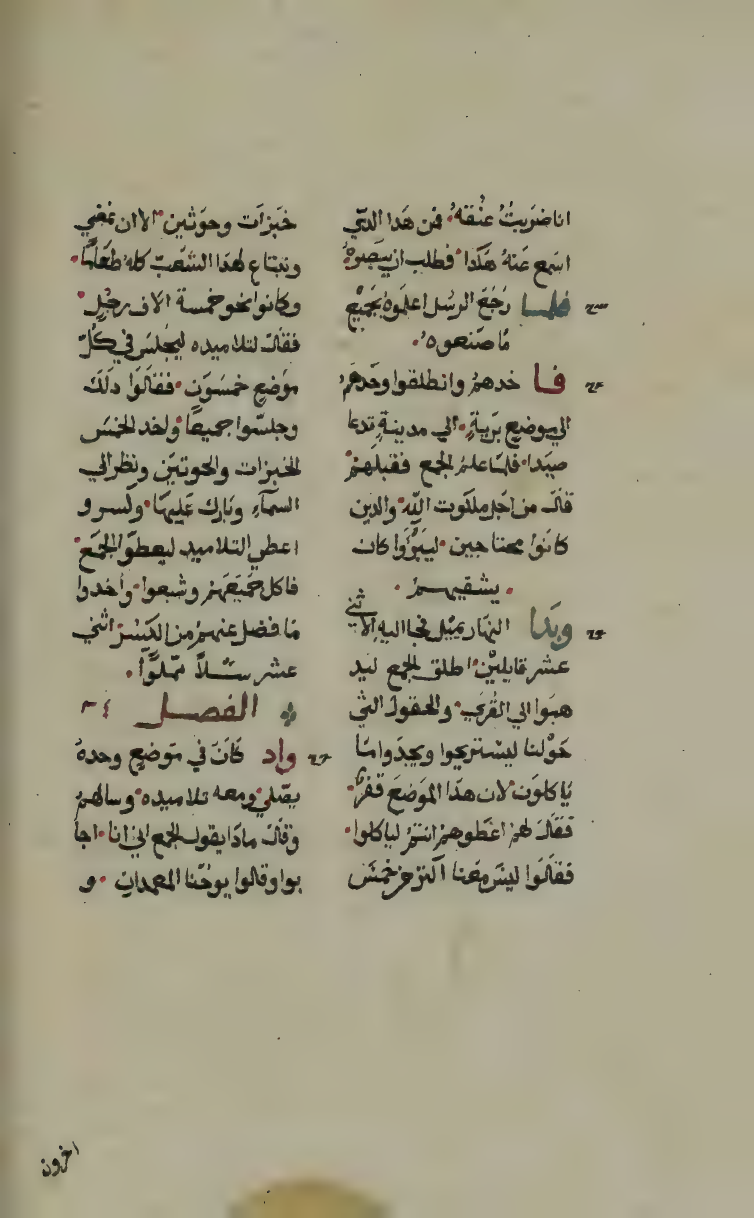 انا ضربتُ عُنقهُ فمن هَدا الدّي
اسَمع عَنهُ هَكَدا فطلب ان يبصَروهُ
فلمــا رَجُعَ الرسُل اعلمَوهُ بجَميْع
مَا صنَعوه
فــا خدهمُ وانطلقوا وحَدهَمُ
الي موضع بَريةٍ الي مدينةٍ تدعا
صَيَدا فلمّا علمُ الجمع فقبلَهمُ
قالَ من اجَل ملكَوت اللّه والدين
كانَوا محتاجين ليَبرُوا كان
يشفيهــمُ
وبَدا النهَار يميَل فجا اليه الاثني
عشر قايلينْ اطلق الجمع ليد
هبَوا الي القُريَ والحقولَ التي
حَوْلنا ليسَتريحوا ويجدَوا مَا
ياكلوَن لان هدَا الموَضعَ قفرٌ
فقالَ لهمُ اعَطوهمُ انتمُ لياكلوا
فقالَوا ليسَ معَنا اكترَ من خمسَ
خبَزات وحوَتين الا ان نمَضي
ونبتاع لهدَا الشعَبّ كله طعَامًا
وكانوا نحو خمسَة الاف رجُلٍ
فقالَ لتلاميده ليجلسَ في كُلّ
موَضع خمسَوَن فقالَوا دلَك
وجلسَوا جميعًا واخد الخمسَ
الخبزات والحوتيَن ونظر الي
السمآءِ وبَارك عَليهَا وكسَر و
اعطي التلاميد ليعطوَا الجمَع
فاكل جميَعهَمُ وشبعوا واخدوا
مَا فضل عنهمُ من الكسَرَ اثني
عشر سَــلاً مملَوًّا
الفصــل ٣٤
واد كَانَ في موَضع وحدهُ
يصَلي ومعه تلاميده وسالهمُ
وقالَ مادَا يقول الجمع اني انا اجا
بوا وقالوا يوحَنا المعمدان و
اخرون